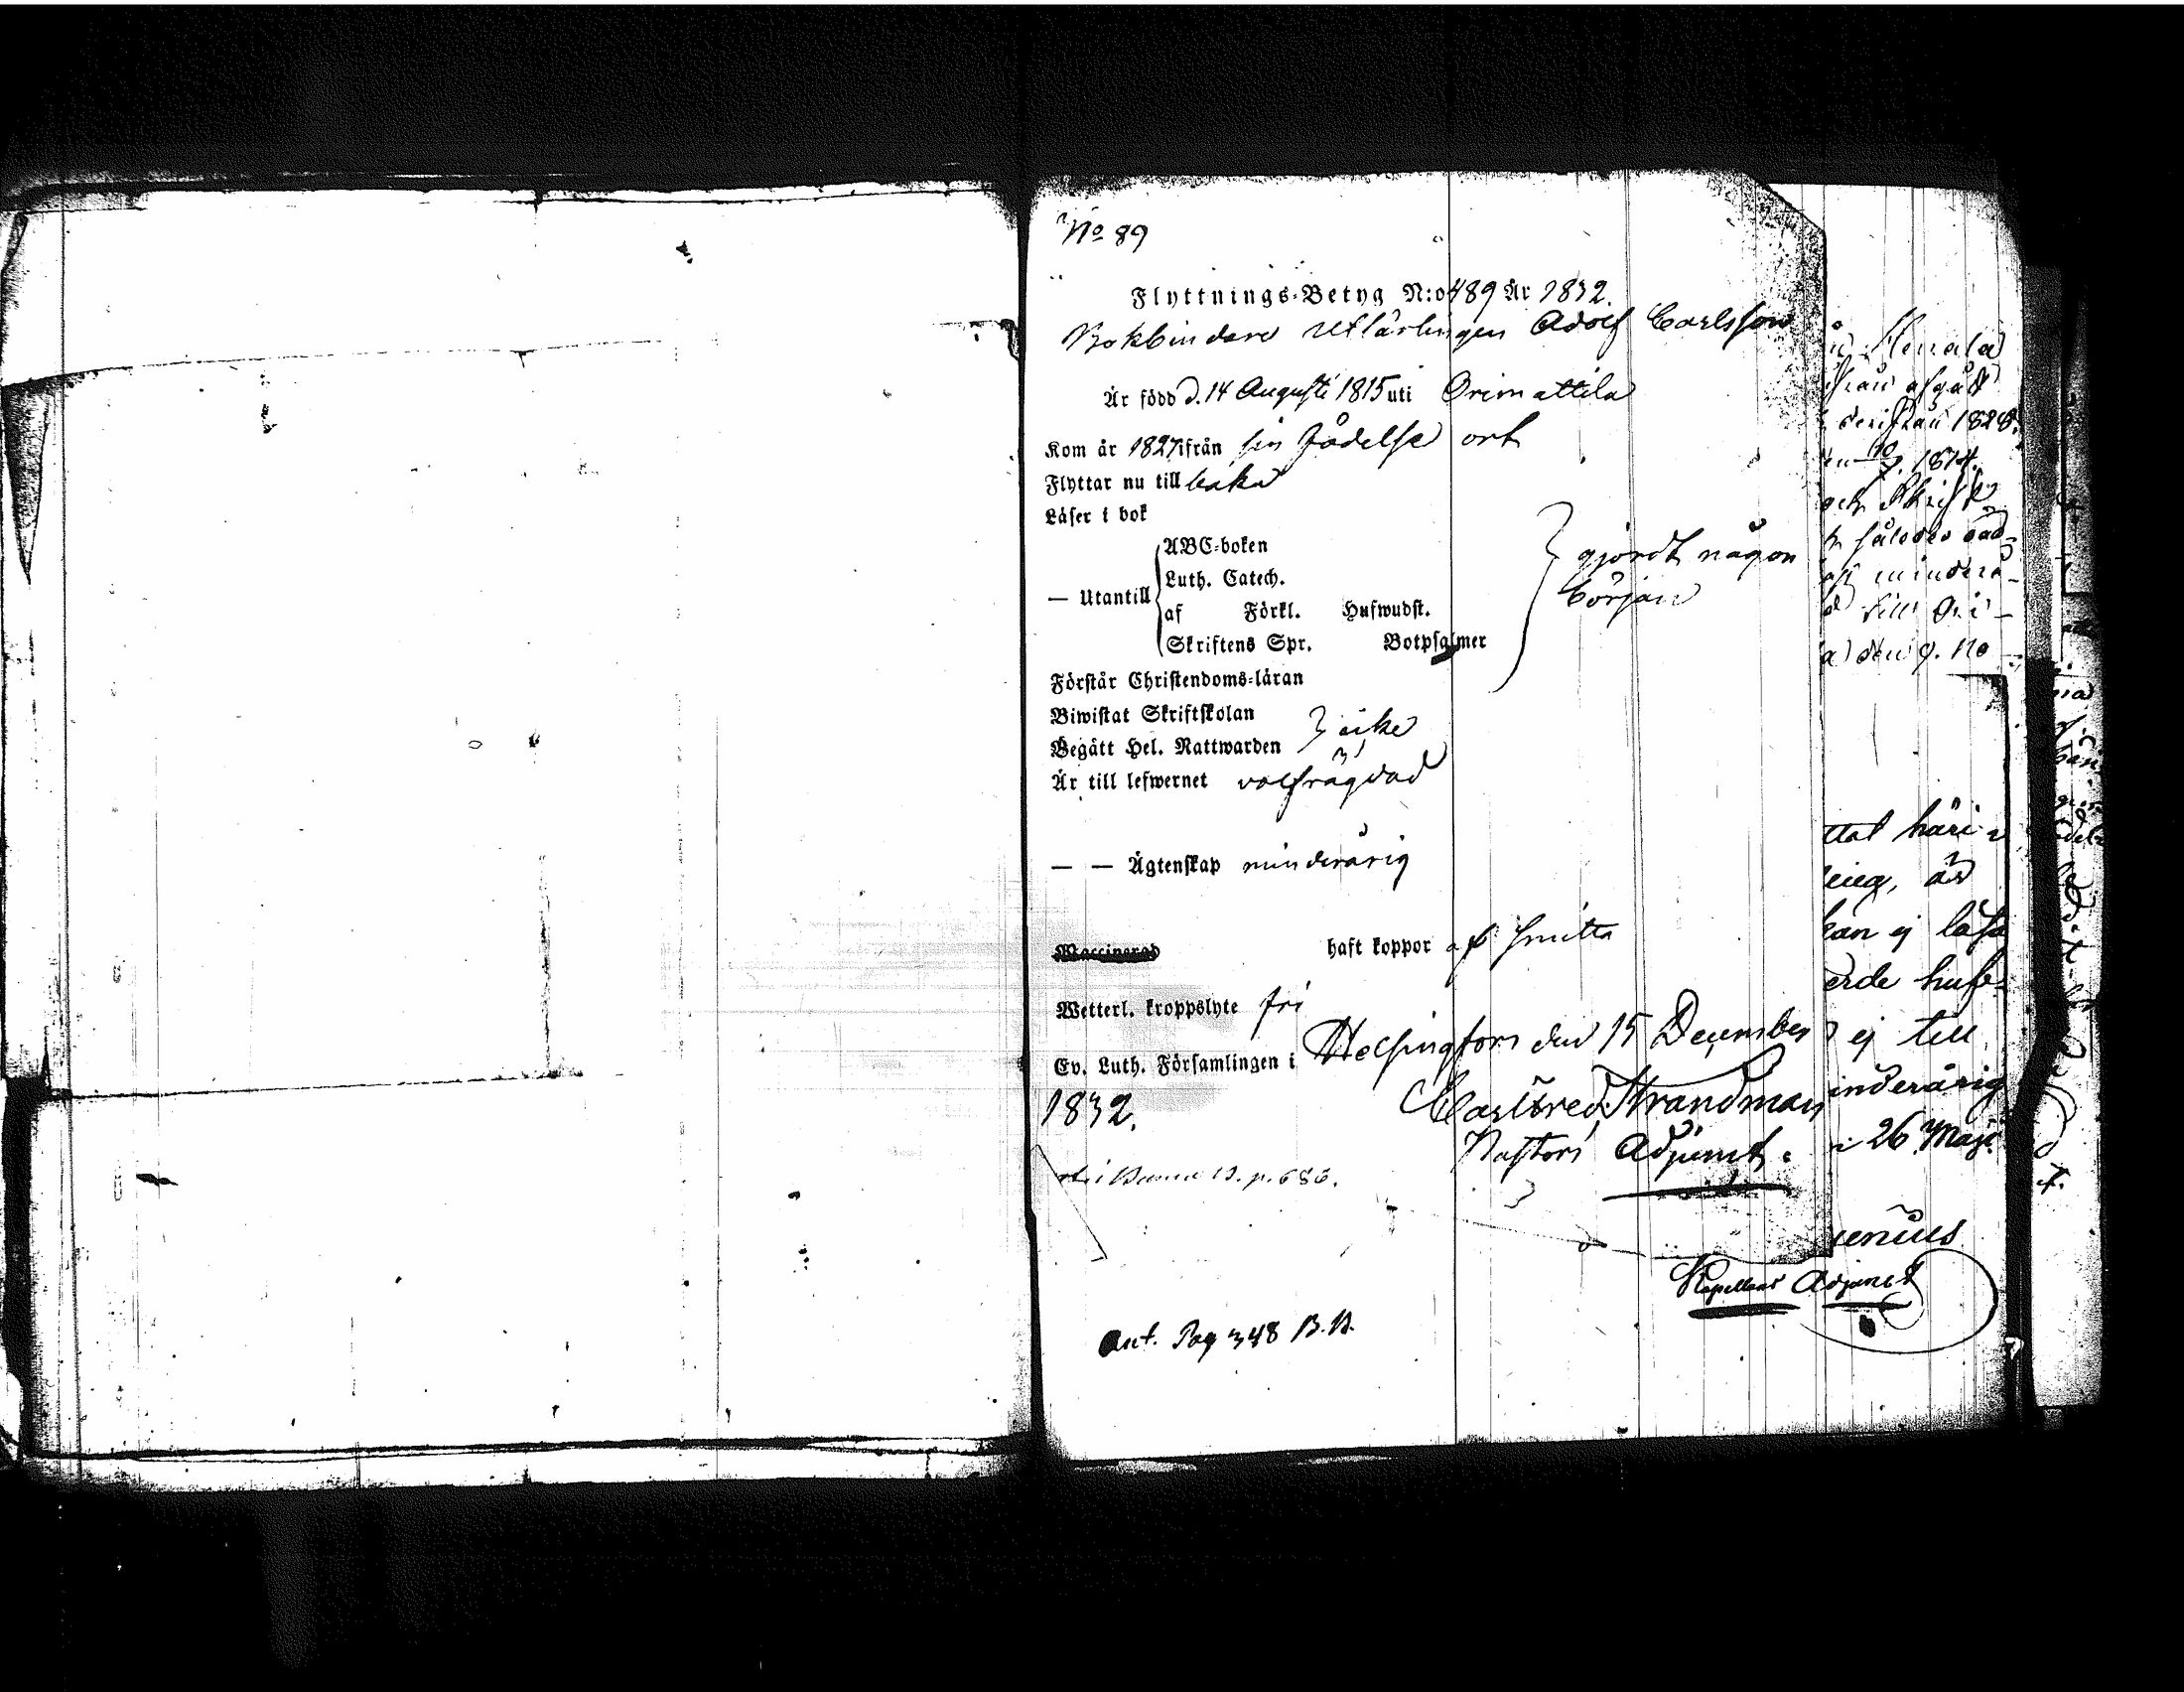 No 89
Flyttnings-Betyg N:o 489 År 1832.
Bokbindare Utlärlingen Adolf Carlsson
Är född d. 14 Augusti 1815 uti Orimattila
Kom år 1827 ifrån sin födelse ort
Flyttar nu till baka
Läser i bok
— Utantill
ABC-boken
Luth. Catech.
af Förkl. Hufwudst.
Skriftens Spr. Botpsalmer
gjordt någon
början
Förstår Christendoms-läran
Biwistat Skriftskolan
Begått Hel. Nattwarden
icke
Är till lefwernet välfrägdad
— — Ägtenskap minderårig
Waccinerad haft koppor af smitta
Wetterl. kroppslyte fri
Ev. Luth. Församlingen i Helsingfors den 15 December
1832. Carl Fred. Strandman
Pastors Adjunct.
p. 686.
Ant. Pag 348 B. B.
deriſrån 1828.
1814.
minderå-
ttat häri-
är
kan ej läsa
ej till
inderårig
26 Maji
enius
Kapellans Adjunct